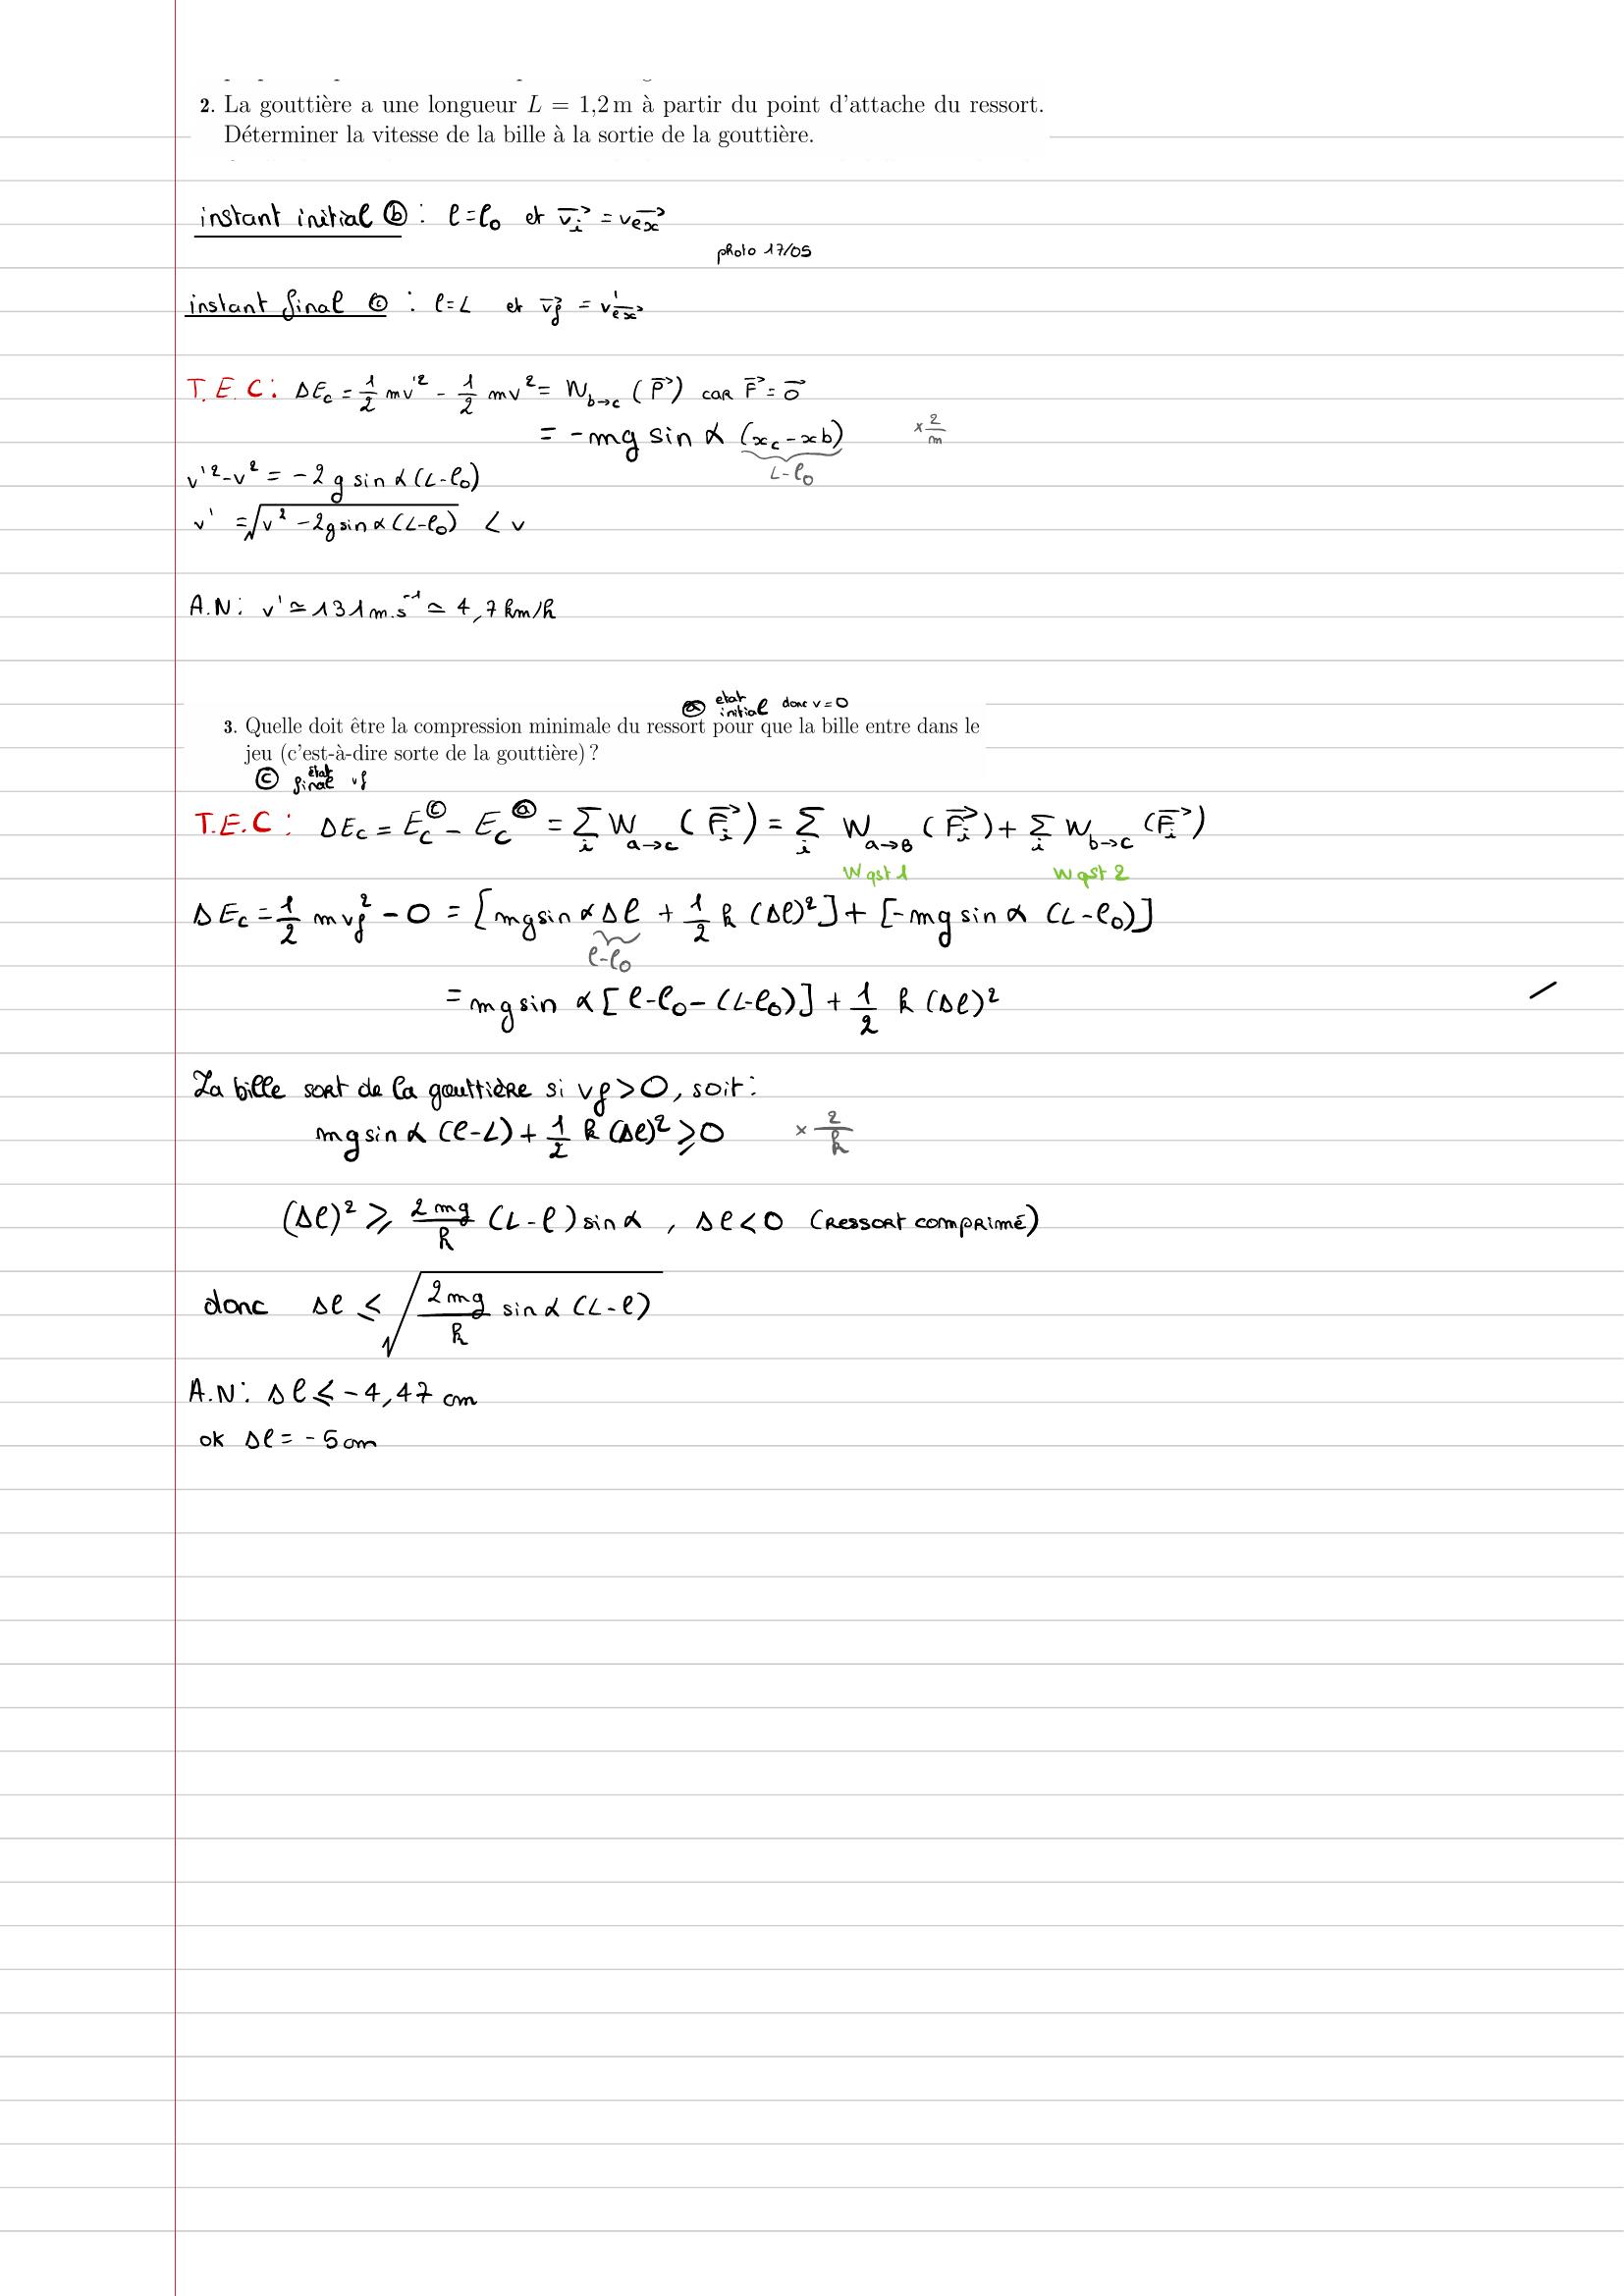 2. La gouttière a une longueur L = 1,2 m à partir du point d'attache du ressort.
Déterminer la vitesse de la bille à la sortie de la gouttière.
instant initial ⓑ : l=l₀ et v⃗ᵢ = v e⃗ₓ
photo 17/05
instant final ⓒ : l=L et v⃗f = v' e⃗ₓ
T.E.C: ΔEc = 1/2 mv'² - 1/2 mv² = W b→c (P⃗) car F⃗ = 0⃗
= -mg sin α (xc - xb) × 2/m
L-l₀
v'² - v² = -2 g sin α (L-l₀)
v' = √(v² - 2g sin α (L-l₀)) < v
A.N: v' ≃ 131 m.s⁻¹ ≃ 4,7 km/h
ⓐ etat initial donc v=0
3. Quelle doit être la compression minimale du ressort pour que la bille entre dans le
jeu (c'est-à-dire sorte de la gouttière) ?
ⓒ état final vf
T.E.C : ΔEc = Ec^ⓒ - Ec^ⓐ = Σᵢ W a→c (F⃗ᵢ) = Σᵢ W a→B (F⃗ᵢ) + Σᵢ W b→c (F⃗ᵢ)
W qst 1 W qst 2
ΔEc = 1/2 mvf² - 0 = [mg sin α Δl + 1/2 k (Δl)²] + [-mg sin α (L-l₀)]
l-l₀
= mg sin α [l-l₀-(L-l₀)] + 1/2 k (Δl)²
La bille sort de la gouttière si vf > 0, soit :
mg sin α (l-L) + 1/2 k (Δl)² ⩾ 0 × 2/k
(Δl)² ⩾ 2mg/k (L-l) sin α , Δl < 0 (ressort comprimé)
donc Δl ⩽ √(2mg/k sin α (L-l))
A.N: Δl ⩽ -4,47 cm
ok Δl = -5 cm